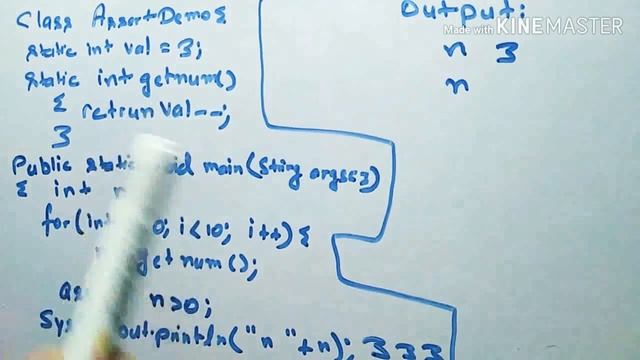 Class AssertDemo{
static int val = 3;
static int getnum()
{ retrun val--;
}
Public static void main(String args[])
{ int n
for(int 0; i<10; i++){
getnum();
n>0;
out.println("n "+n); }}}
Output:
n 3
n
Made with KINEMASTER